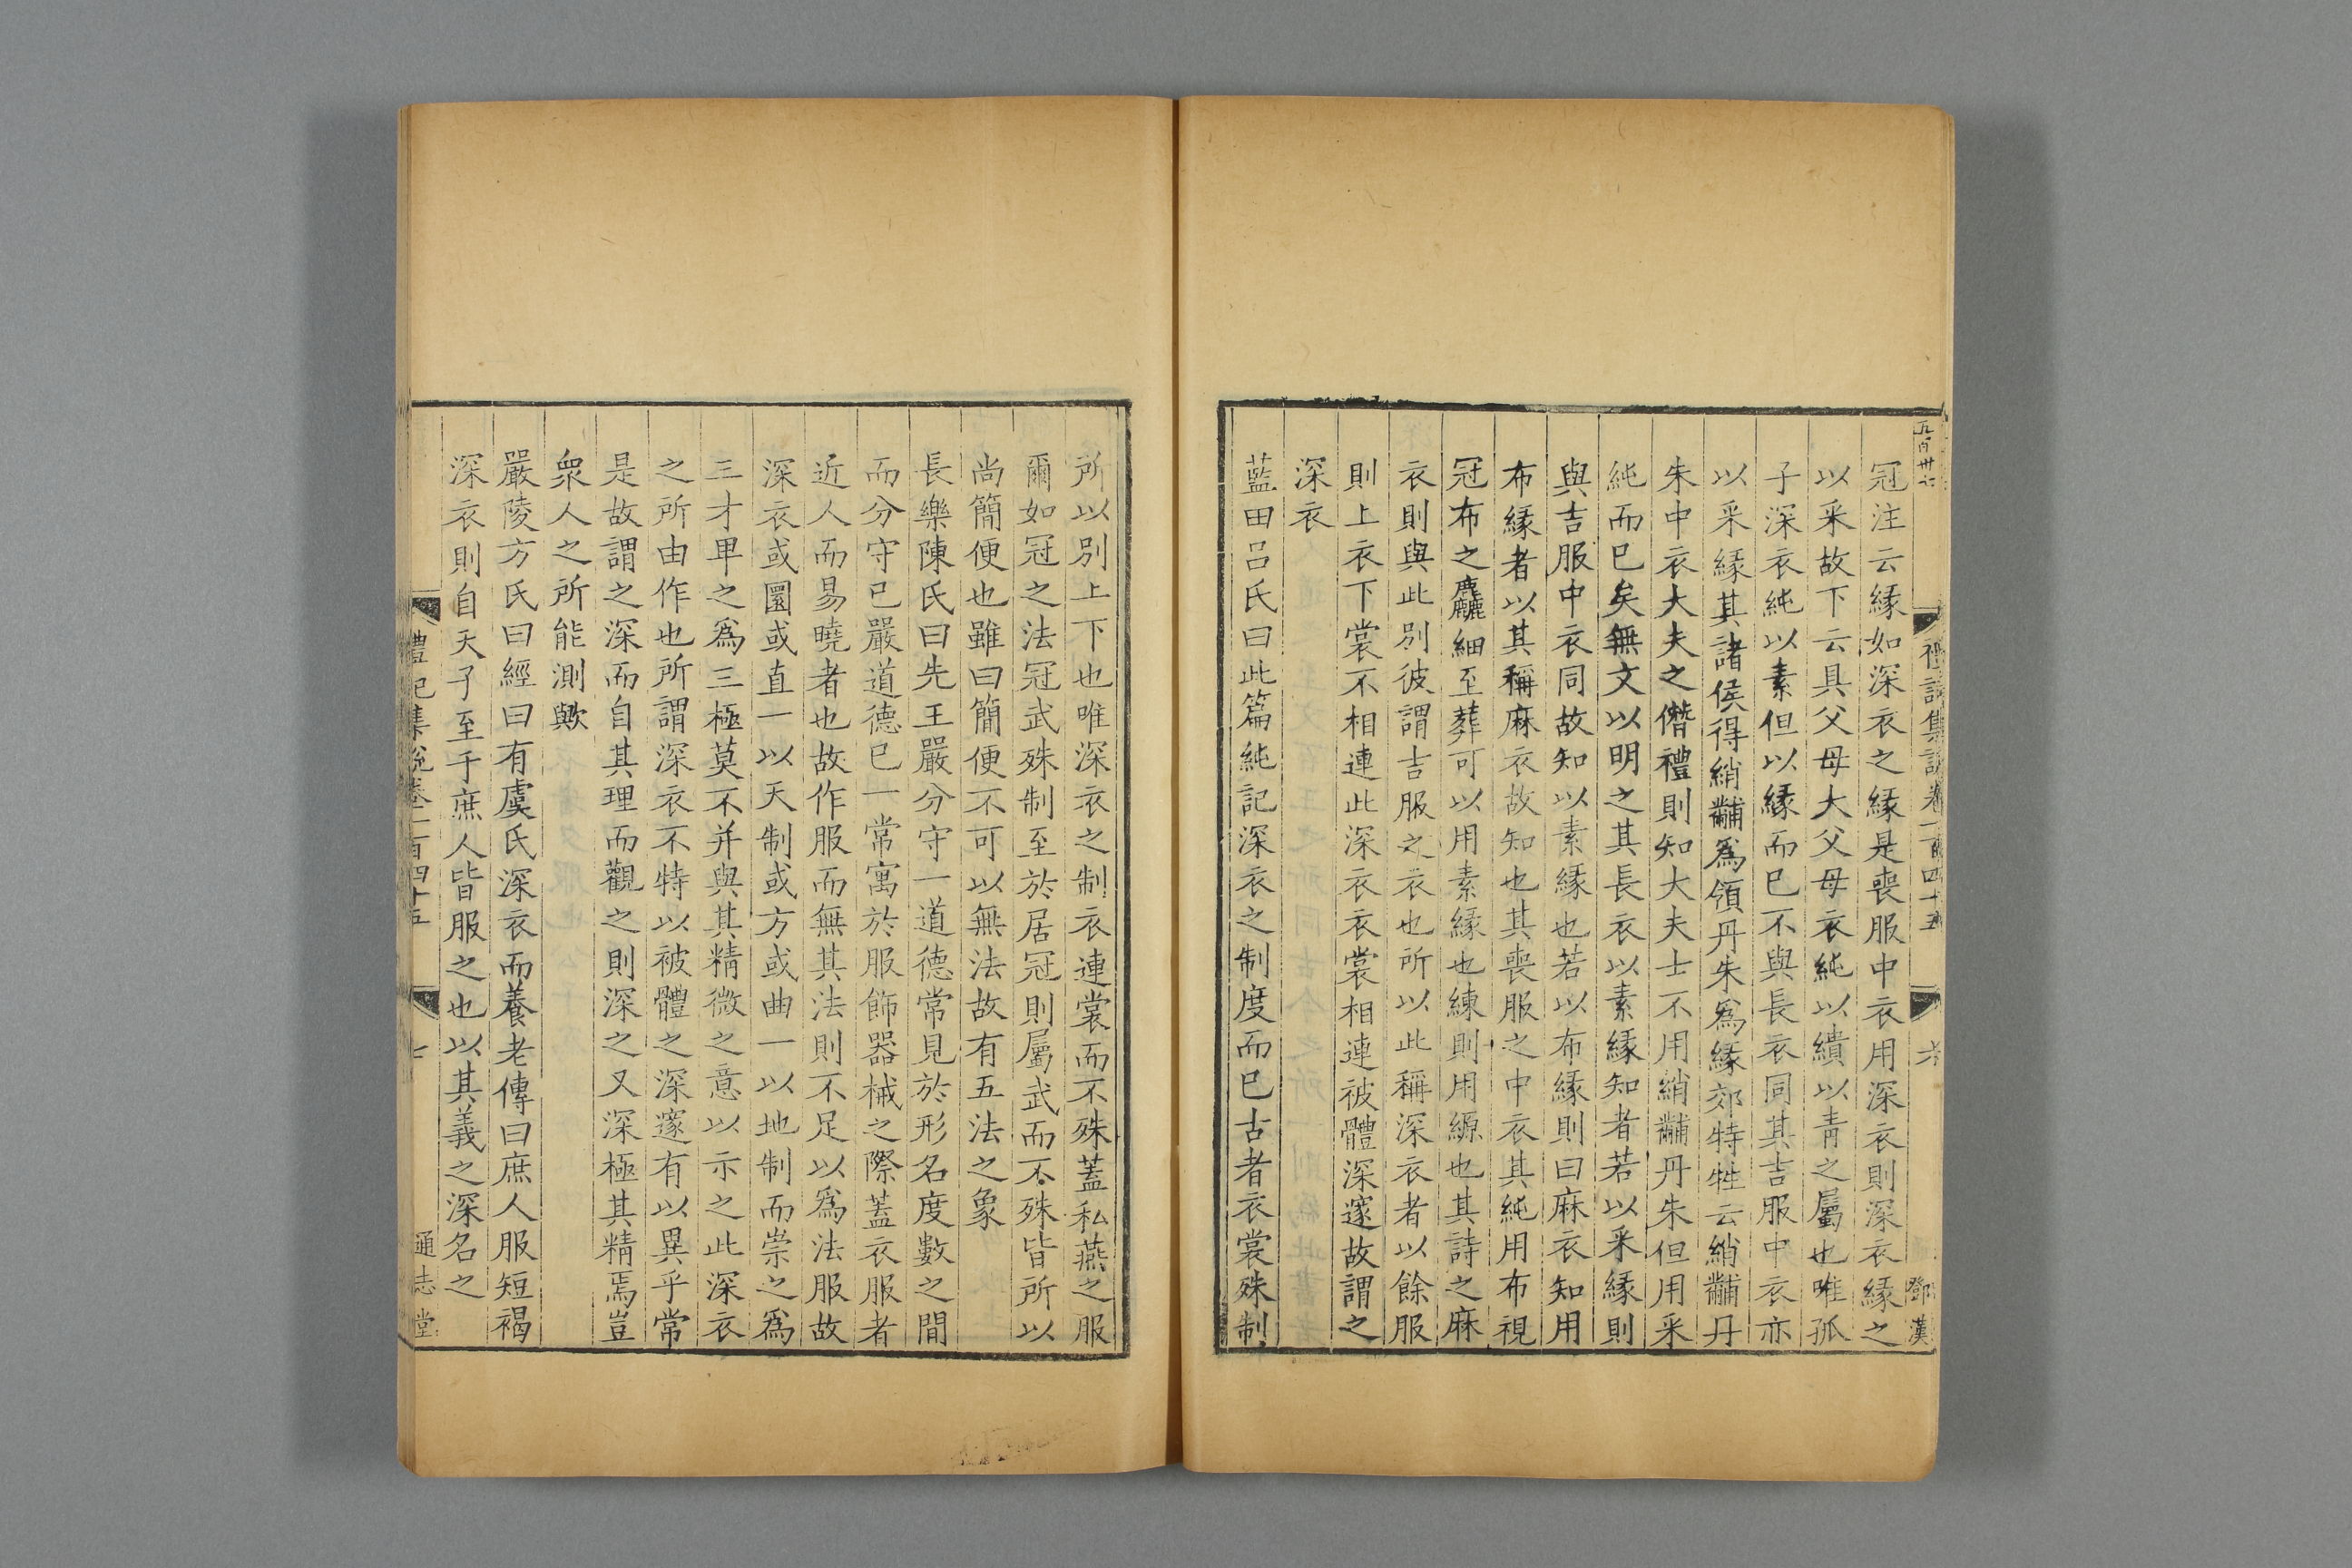 五百卅六
禮記集說卷一百四十五
六
鄧漢
冠注云緣如深衣之緣是喪服中衣用深衣則深衣緣之
以采故下云具父母大父母衣純以繢以青之屬也唯孤
子深衣純以素但以緣而已不與長衣同其吉服中衣亦
以采緣其諸侯得綃黼爲領丹朱爲緣郊特牲云綃黼丹
朱中衣大夫之僭禮則知大夫士不用綃黼丹朱但用采
純而已矣無文以明之其長衣以素緣知者若以采緣則
與吉服中衣同故知以素緣也若以布緣則曰麻衣知用
布緣者以其稱麻衣故知也其喪服之中衣其純用布視
冠布之麤細至葬可以用素緣也練則用縓也其詩之麻
衣則與此別彼謂吉服之衣也所以此稱深衣者以餘服
則上衣下裳不相連此深衣衣裳相連被體深邃故謂之
深衣
藍田呂氏曰此篇純記深衣之制度而已古者衣裳殊制
所以別上下也唯深衣之制衣連裳而不殊蓋私燕之服
爾如冠之法冠武殊制至於居冠則屬武而不殊皆所以
尚簡便也雖曰簡便不可以無法故有五法之象
長樂陳氏曰先王嚴分守一道德常見於形名度數之間
而分守已嚴道德已一常寓於服飾器械之際蓋衣服者
近人而易曉者也故作服而無其法則不足以爲法服故
深衣或圜或直一以天制或方或曲一以地制而崇之爲
三才甲之爲三極莫不并與其精微之意以示之此深衣
之所由作也所謂深衣不特以被體之深邃有以異乎常
是故謂之深而自其理而觀之則深之又深極其精焉豈
衆人之所能測歟
嚴陵方氏曰經曰有虞氏深衣而養老傳曰庶人服短褐
深衣則自天子至于庶人皆服之也以其義之深名之
禮記集說卷一百四十五
七
通志堂